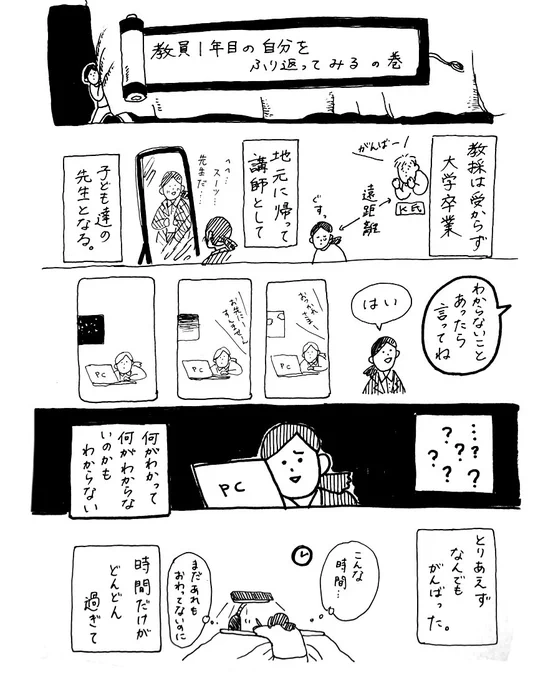 教員1年目の自分を
ふり返ってみるの巻
教採は受からず
大学卒業
がんばー!
K氏
遠距離
ぐすっ
地元に帰って
講師として
へへ…スーツ…
先生だ…
子ども達の
先生となる。
わからないこと
あったら
言ってね
はい
おつかれ
さまー
PC
お先にー
すいません
PC
PC
…?
? ?
? ?
? ?
PC
何がわかって
何がわからな
いのかも
わからない
とりあえず
なんでも
がんばった。
こんな
時間…
まだあれも
おわってないのに
時間だけが
どんどん
過ぎて